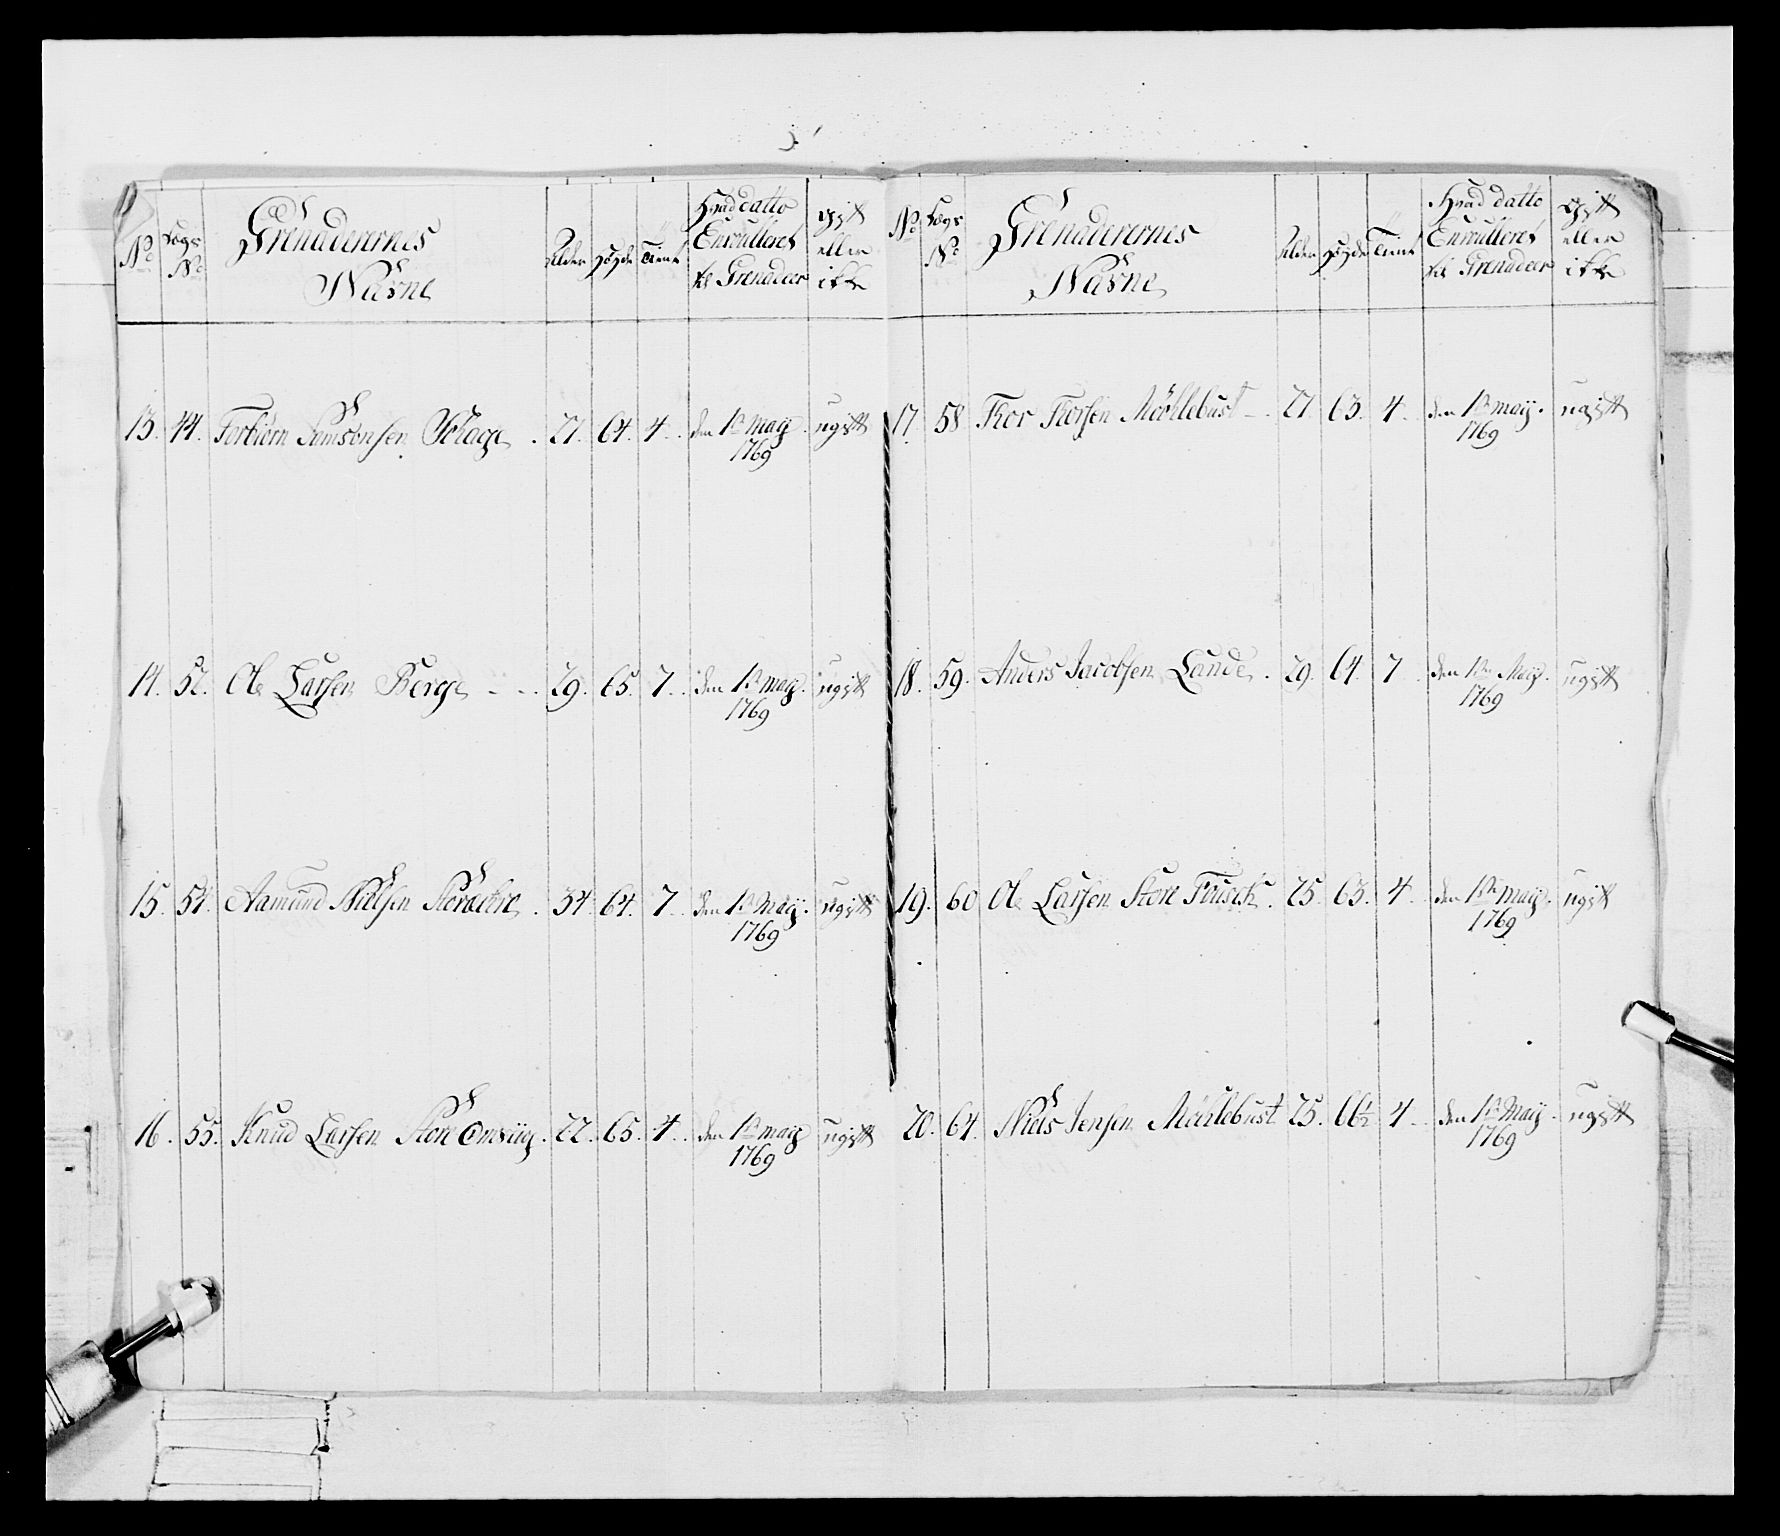 No
Lægs No
Grenaderernes Nafne
Alder
Høyde
Tient
Hvad datto Enroulleret til Grenadeer
gift eller ikke
13. 44. Torbiørn Samsonsen . 27. 64. 4. den 1te maij 1769 ugift
14. 52. Ole Larsen Berge . 29. 65. 7. den 1te maij 1769 ugift
15. 54. Aamund Nielsen . 34. 64. 7. den 1te Maij 1769 ugift
16. 55. Knud Larsen Store . 22. 65. 4. den 1te maij 1769 ugift
No
Lægs No
Grenaderernes Nafne
Alder
Høyde
Tient
Hvad datto Enroulleret til Grenadeer
gift eller ikke
17. 58 Thor Thorsen Møhlebust 27 63. 4. den 1te maij. 1769 ugift
18. 59. Anders Jacobsen Lande. 29. 64. 7 den 1te Maij. 1769 ugift
19. 60 Ole Larsen Store . 25. 63. 4. den 1te maij. 1769 ugift
20. 64. Niels Jensen Møhlebust 25. 66½ 4 den 1te Maij. 1769 ugift